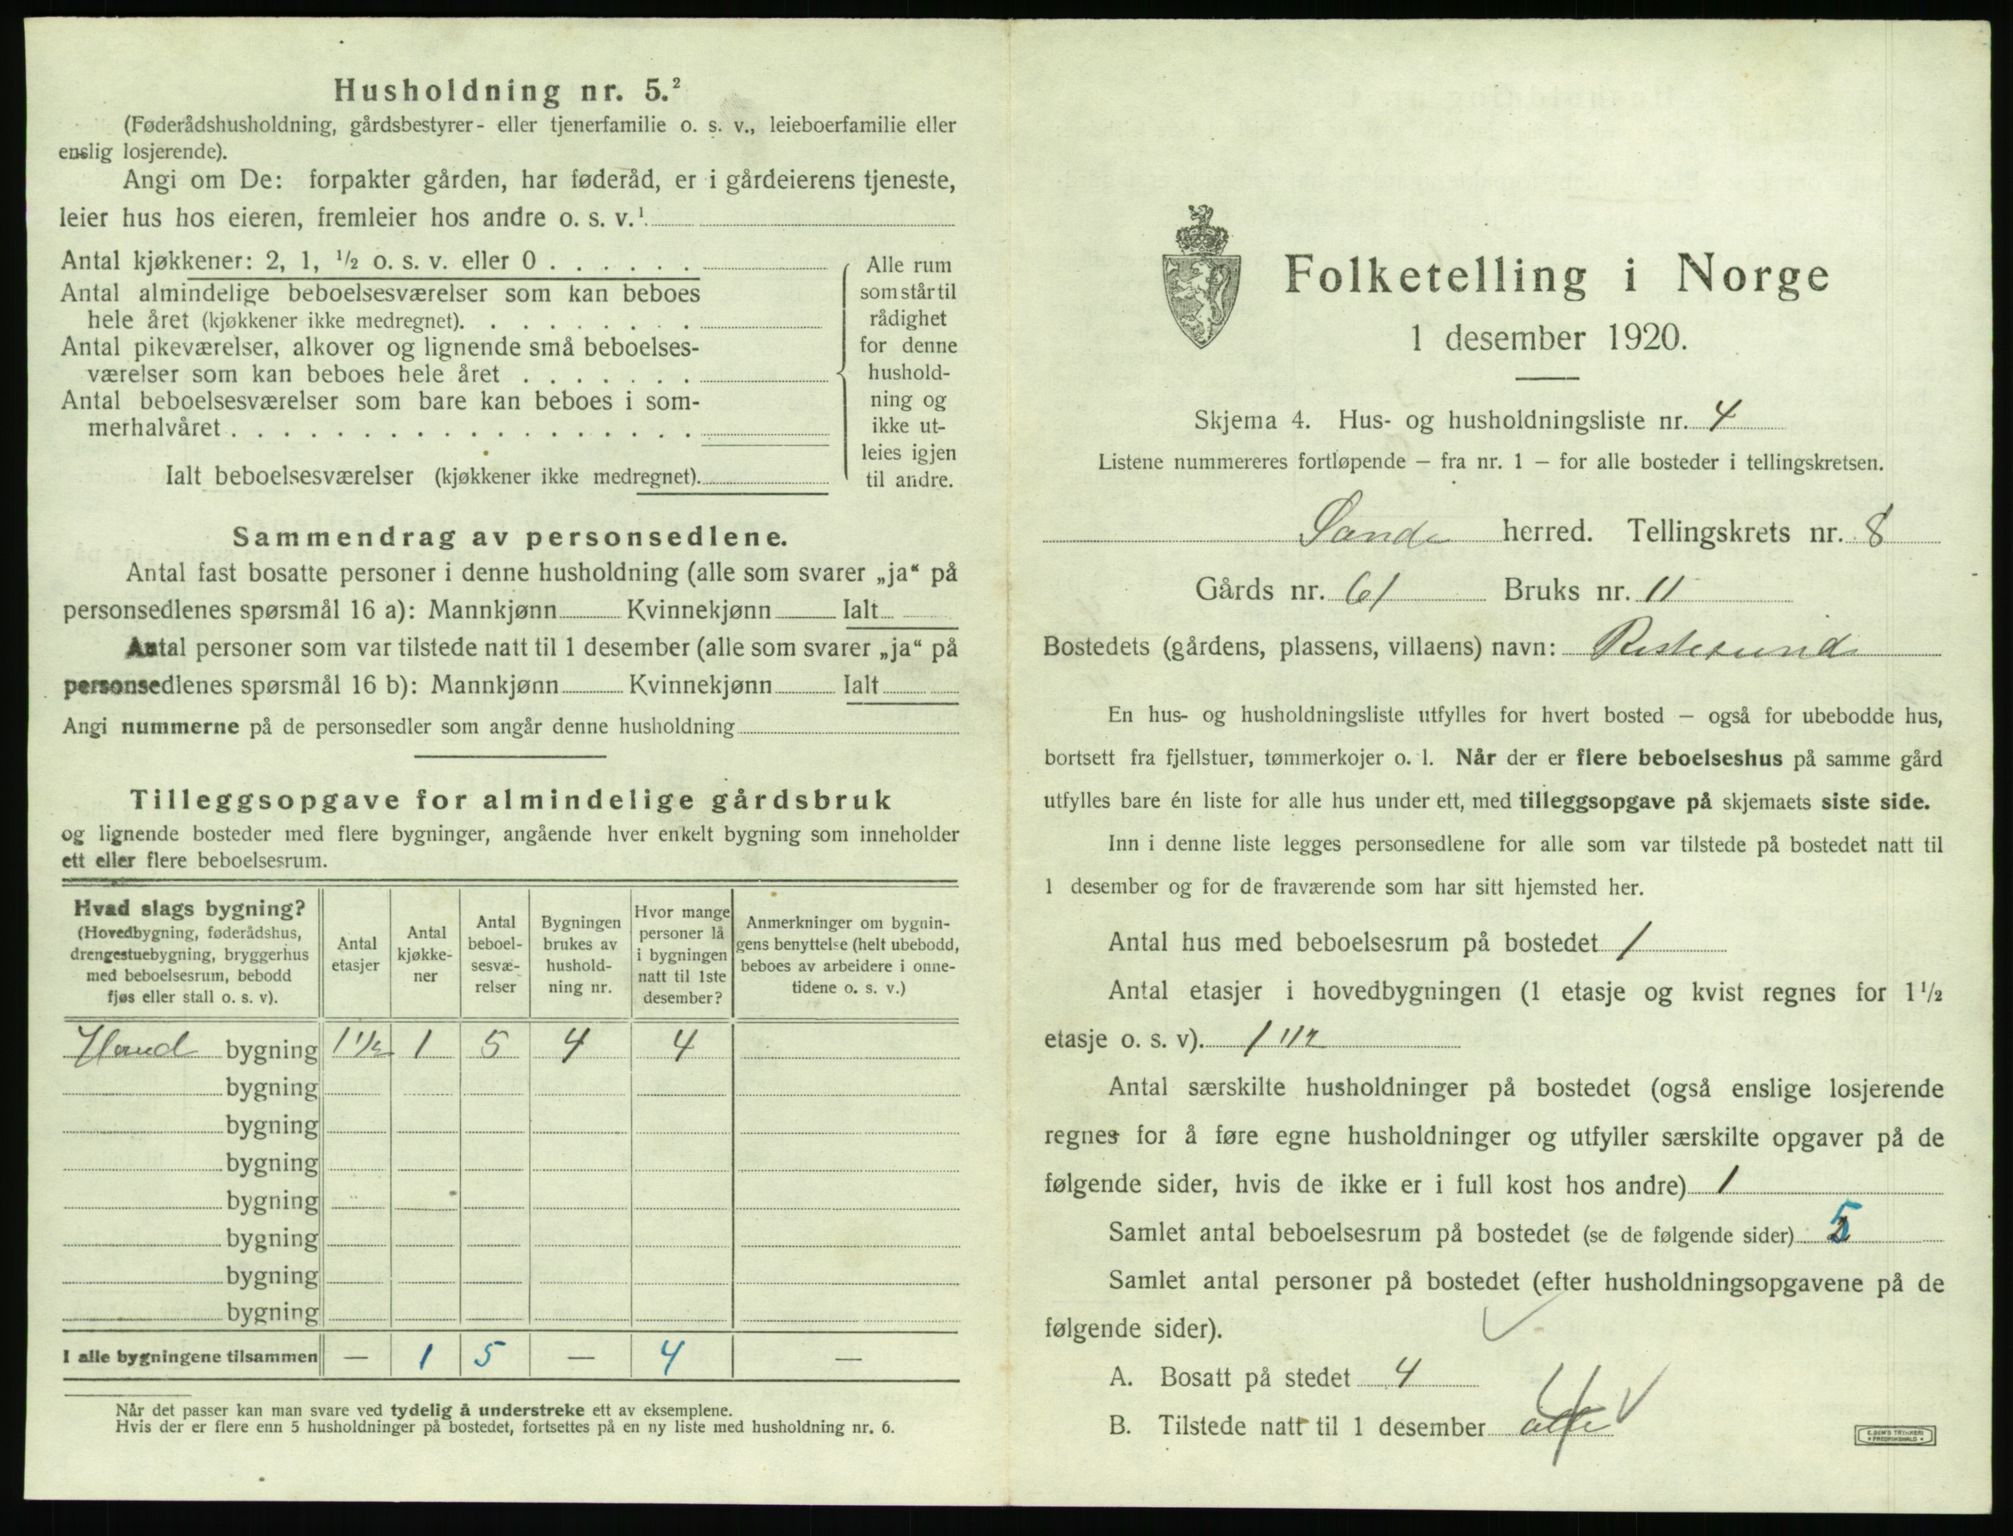 Husholdning nr. 5.²
(Føderådshusholdning, gårdsbestyrer- eller tjenerfamilie o. s. v., leieboerfamilie eller
enslig losjerende).
Angi om De: forpakter gården, har føderåd, er i gårdeierens tjeneste,
leier hus hos eieren, fremleier hos andre o. s. v.¹
Antal kjøkkener: 2, 1, ½ o. s. v. eller 0 . . . . . .
Antal almindelige beboelsesværelser som kan beboes
hele året (kjøkkener ikke medregnet). . . . . . . . .
Antal pikeværelser, alkover og lignende små beboelses-
værelser som kan beboes hele året . . . . . . .
Antal beboelsesværelser som bare kan beboes i som-
merhalvåret . . . . . . . . . . . . . . . . . .
Ialt beboelsesværelser (kjøkkener ikke medregnet).
Alle rum
som står til
rådighet
for denne
hushold-
ning og
ikke ut-
leies igjen
til andre.
Sammendrag av personsedlene.
Antal fast bosatte personer i denne husholdning (alle som svarer „ja“ på
personsedlenes spørsmål 16 a): Mannkjønn Kvinnekjønn Ialt
Antal personer som var tilstede natt til 1 desember (alle som svarer „ja“ på
personsedlenes spørsmål 16 b): Mannkjønn Kvinnekjønn Ialt
Angi nummerne på de personsedler som angår denne husholdning
Tilleggsopgave for almindelige gårdsbruk
og lignende bosteder med flere bygninger, angående hver enkelt bygning som inneholder
ett eller flere beboelsesrum.
Hvad slags bygning?
(Hovedbygning, føderådshus,
drengestuebygning, bryggerhus
med beboelsesrum, bebodd
fjøs eller stall o. s. v).
Antal
etasjer
Antal
kjøkke-
ner
Antal
beboel-
sesvæ-
relser
Bygningen
brukes av
hushold-
ning nr.
Hvor mange
personer lå
i bygningen
natt til 1ste
desember?
Anmerkninger om bygnin-
gens benyttelse (helt ubebodd,
beboes av arbeidere i onne-
tidene o. s. v.)
bygning 1 1/2 1 5 4 4
bygning
bygning
bygning
bygning
bygning
bygning
bygning
I alle bygningene tilsammen — 1 5 — 4 —
Når det passer kan man svare ved tydelig å understreke ett av eksemplene.
Hvis der er flere enn 5 husholdninger på bostedet, fortsettes på en ny liste med husholdning nr. 6.
Folketelling i Norge
1 desember 1920.
Skjema 4. Hus- og husholdningsliste nr. 4
Listene nummereres fortløpende – fra nr. 1 – for alle bosteder i tellingskretsen.
Sande herred. Tellingskrets nr. 8
Gårds nr. 61 Bruks nr. 11
Bostedets (gårdens, plassens, villaens) navn: Ristesund
En hus- og husholdningsliste utfylles for hvert bosted – også for ubebodde hus,
bortsett fra fjellstuer, tømmerkojer o. l. Når der er flere beboelseshus på samme gård
utfylles bare én liste for alle hus under ett, med tilleggsopgave på skjemaets siste side.
Inn i denne liste legges personsedlene for alle som var tilstede på bostedet natt til
1 desember og for de fraværende som har sitt hjemsted her.
Antal hus med beboelsesrum på bostedet 1
Antal etasjer i hovedbygningen (1 etasje og kvist regnes for 1½
etasje o. s. v). 1 1/2
Antal særskilte husholdninger på bostedet (også enslige losjerende
regnes for å føre egne husholdninger og utfyller særskilte opgaver på de
følgende sider, hvis de ikke er i full kost hos andre) 1
Samlet antal beboelsesrum på bostedet (se de følgende sider) 5
Samlet antal personer på bostedet (efter husholdningsopgavene på de
følgende sider).
A. Bosatt på stedet 4
B. Tilstede natt til 1 desember alle 4
E. SEM'S TRYKKERI
FREDRIKSHALD